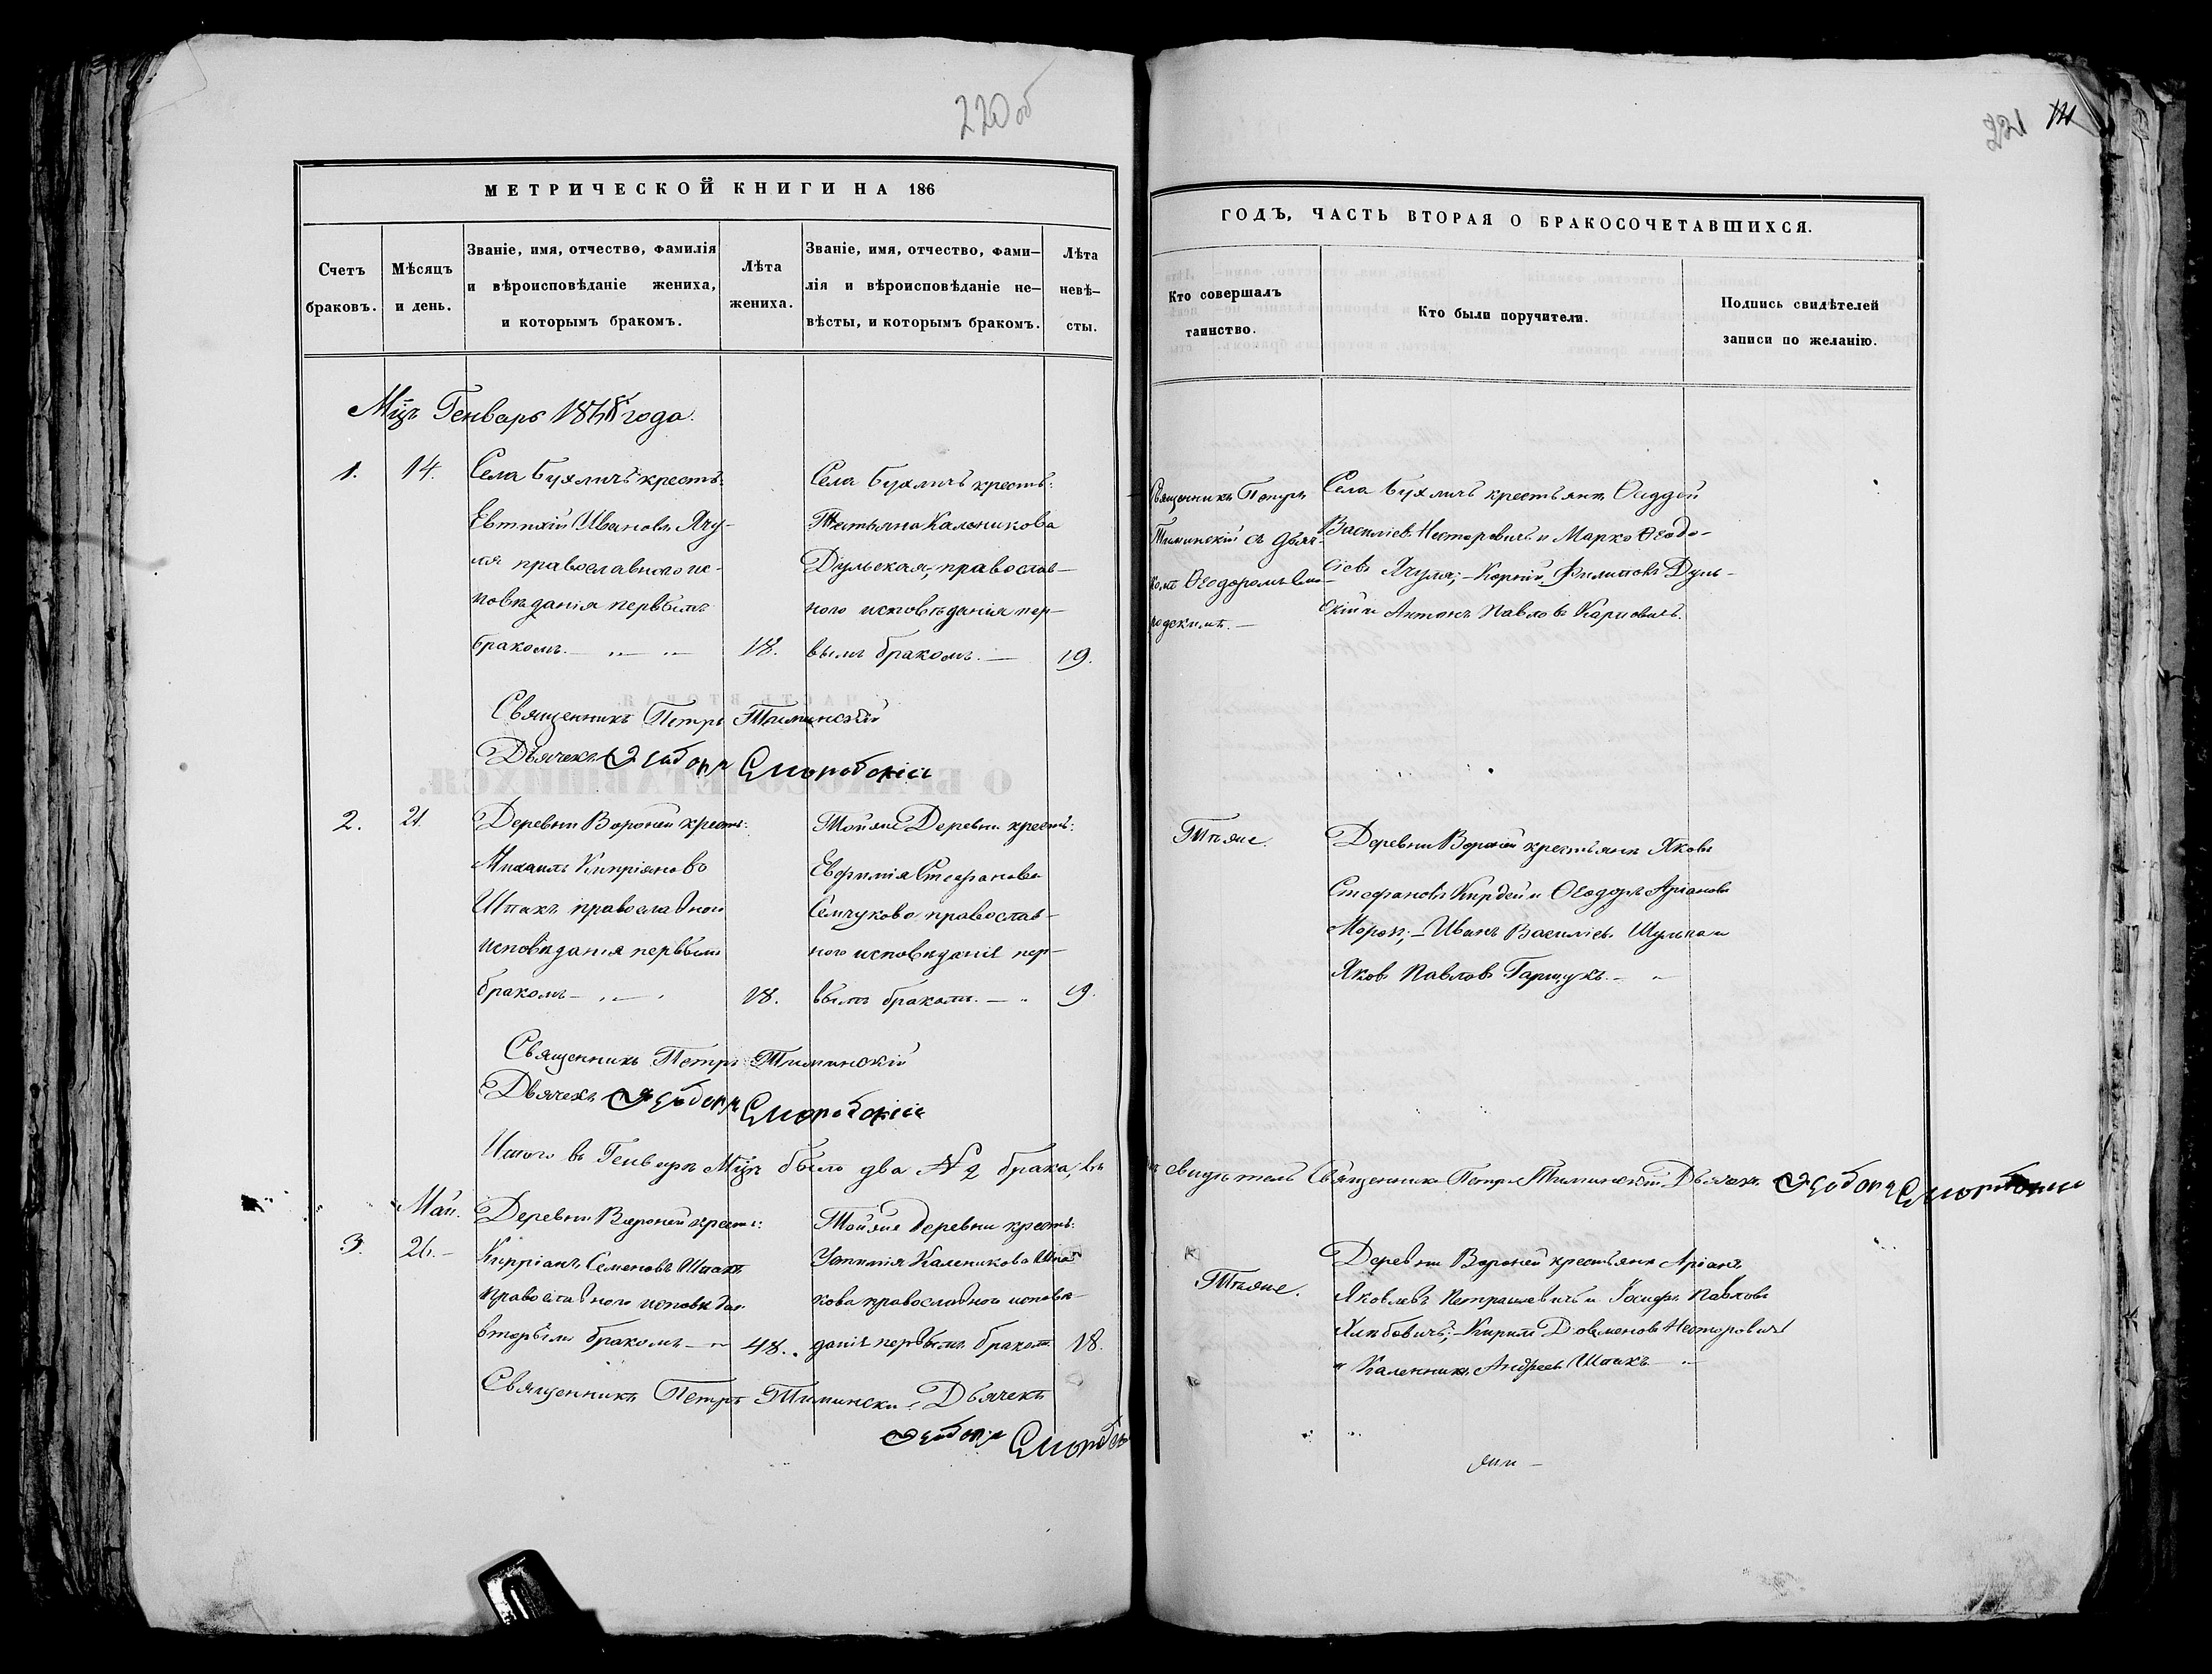 220 об
221
МЕТРИЧЕСКОЙ КНИГИ НА 186
Счетъ браковъ.
Мѣсяцъ и день.
Званіе, имя, отчество, фамилія
и вѣроисповѣданіе жениха,
и которымъ бракомъ.
Лѣта
жениха.
Званіе, имя, отчество, фами–
лія и вѣроисповѣданіе не–
вѣсты, и которымъ бракомъ.
Лѣта
невѣ–
сты.
ГОДЪ, ЧАСТЬ ВТОРАЯ О БРАКОСОЧЕТАВШИХСЯ.
Кто совершалъ
таинство.
Кто были поручители.
Подпись свидѣтелей
записи по желанію.
Мцъ Генварь 1868 года.
1.
14.
Села Бухличъ крестъ:
Евтихій Ивановъ Ягу–
ля православного ис–
повѣданія первымъ
бракомъ.
18.
Села Бухличъ крестъ:
Татьяна Каленикова
Дульская, православ–
ного исповѣданія пер–
вымъ бракомъ. —
19.
Священникъ Петръ
Тиминскій съ Дьяч–
комъ Ѳеодоромъ
Села Бухличъ крестьяне Фаддей
Василіевъ Несторовичъ и Марко Ѳеодо–
сіевъ Ягуля; – Корній Филиповъ Дуль–
скій и Антонъ Павловъ Карповичъ.
Священникъ Петръ Тиминскій
Дьячекъ Ѳеодоръ
2.
21.
Деревни Вороней крестъ:
Михаилъ Кипріяновъ
Шпакъ православного
исповѣданія первымъ
бракомъ —
18.
Тойже Деревни крестъ:
Евфимія Стефанова
Семчукова, православ–
ного исповѣданія пер–
вымъ бракомъ. —
19.
Тѣже.
Деревни Вороней крестьяне Яковъ
Стефановъ Кирдей и Ѳеодоръ Аріановъ
Мороз; – Иванъ Василіевъ Шульга и
Яковъ Павловъ Гарщукъ. –
Священникъ Петръ Тиминскій
Дьячекъ Ѳеодоръ
Итого въ Генварѣ Мцѣ было два № 2 брака, въ
свидѣтель Священникъ Петръ Тиминскій Дьячекъ Ѳеодоръ
Май.
3.
26. –
Деревни Вороней крестъ:
Кипріанъ Семеновъ Шпакъ
православного исповѣдан.
вторымъ бракомъ —
48.
Тойже деревни крестъ:
Каленикова Шпа–
кова православного исповѣ–
данія первымъ бракомъ
18.
Тѣже.
Деревни Вороней крестьяне Аріанъ
Яковлевъ Петрашевичъ и Іосифъ Павловъ
Хлѣбовичъ; – Кирилъ Довменовъ Несторовичъ
и Каленникъ Андреевъ Шпакъ. –
Священникъ Петръ Тимински Дьячекъ
Ѳеодоръ